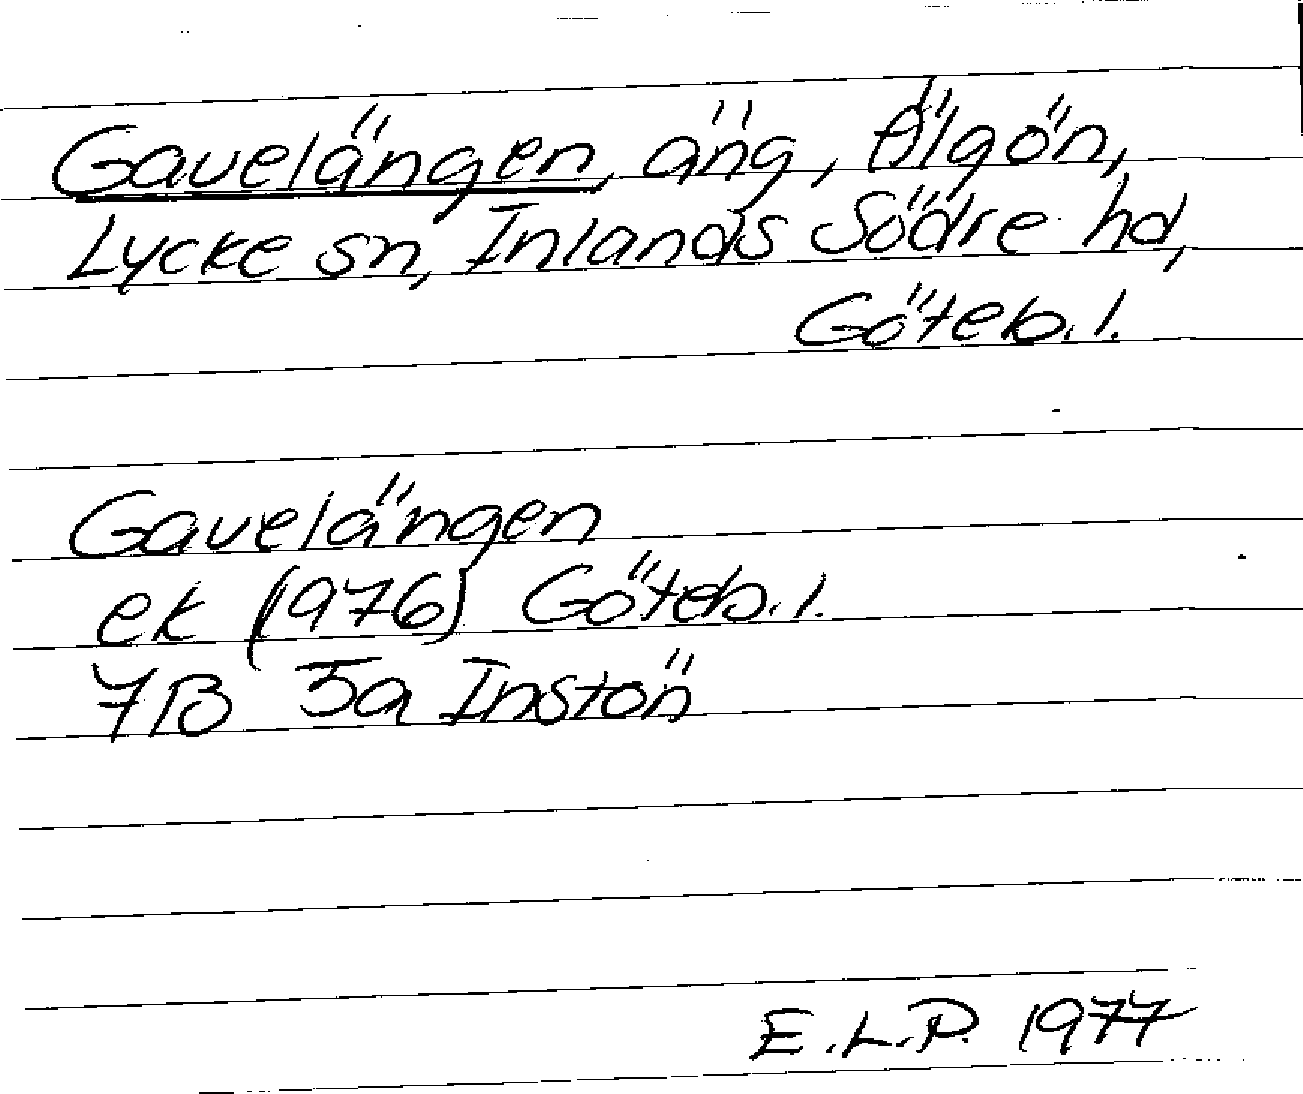 Gavelängen, äng, Älgön,
Lycke sn, Inlands Södre hd,
Göteb. l.
Gavelängen
ek (1976) Göteb. l.
7B 5a Instön
E.L.P. 1977